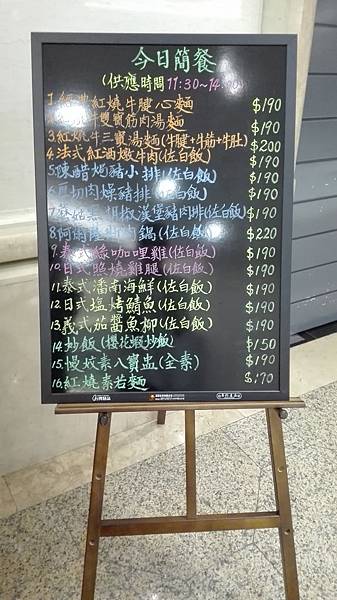 今日簡餐
(供應時間11:30~14:00)
1.經典紅燒牛腱心麵 $190
2.牛雙寶筋肉湯麵 $190
3.紅燒牛三寶湯麵(牛腱+牛筋+牛肚) $200
4.法式紅酒燉牛肉(佐白飯) $190
5.陳醋燜豬小排(佐白飯) $190
6.厚切肉燥豬排(佐白飯) $190
7.蘑菇胡椒漢堡豬肉排(佐白飯) $190
8.阿爾薩斯肉鍋(佐白飯) $220
9.泰式綠咖哩雞(佐白飯) $190
10.日式照燒雞腿(佐白飯) $190
11.泰式潘南海鮮(佐白飯) $190
12.日式塩烤鯖魚(佐白飯) $190
13.義式茄醬魚柳(佐白飯) $190
14.炒飯(櫻花蝦炒飯) $150
15.慢炆素八寶盅(全素) $190
16.紅燒素若麵 $170